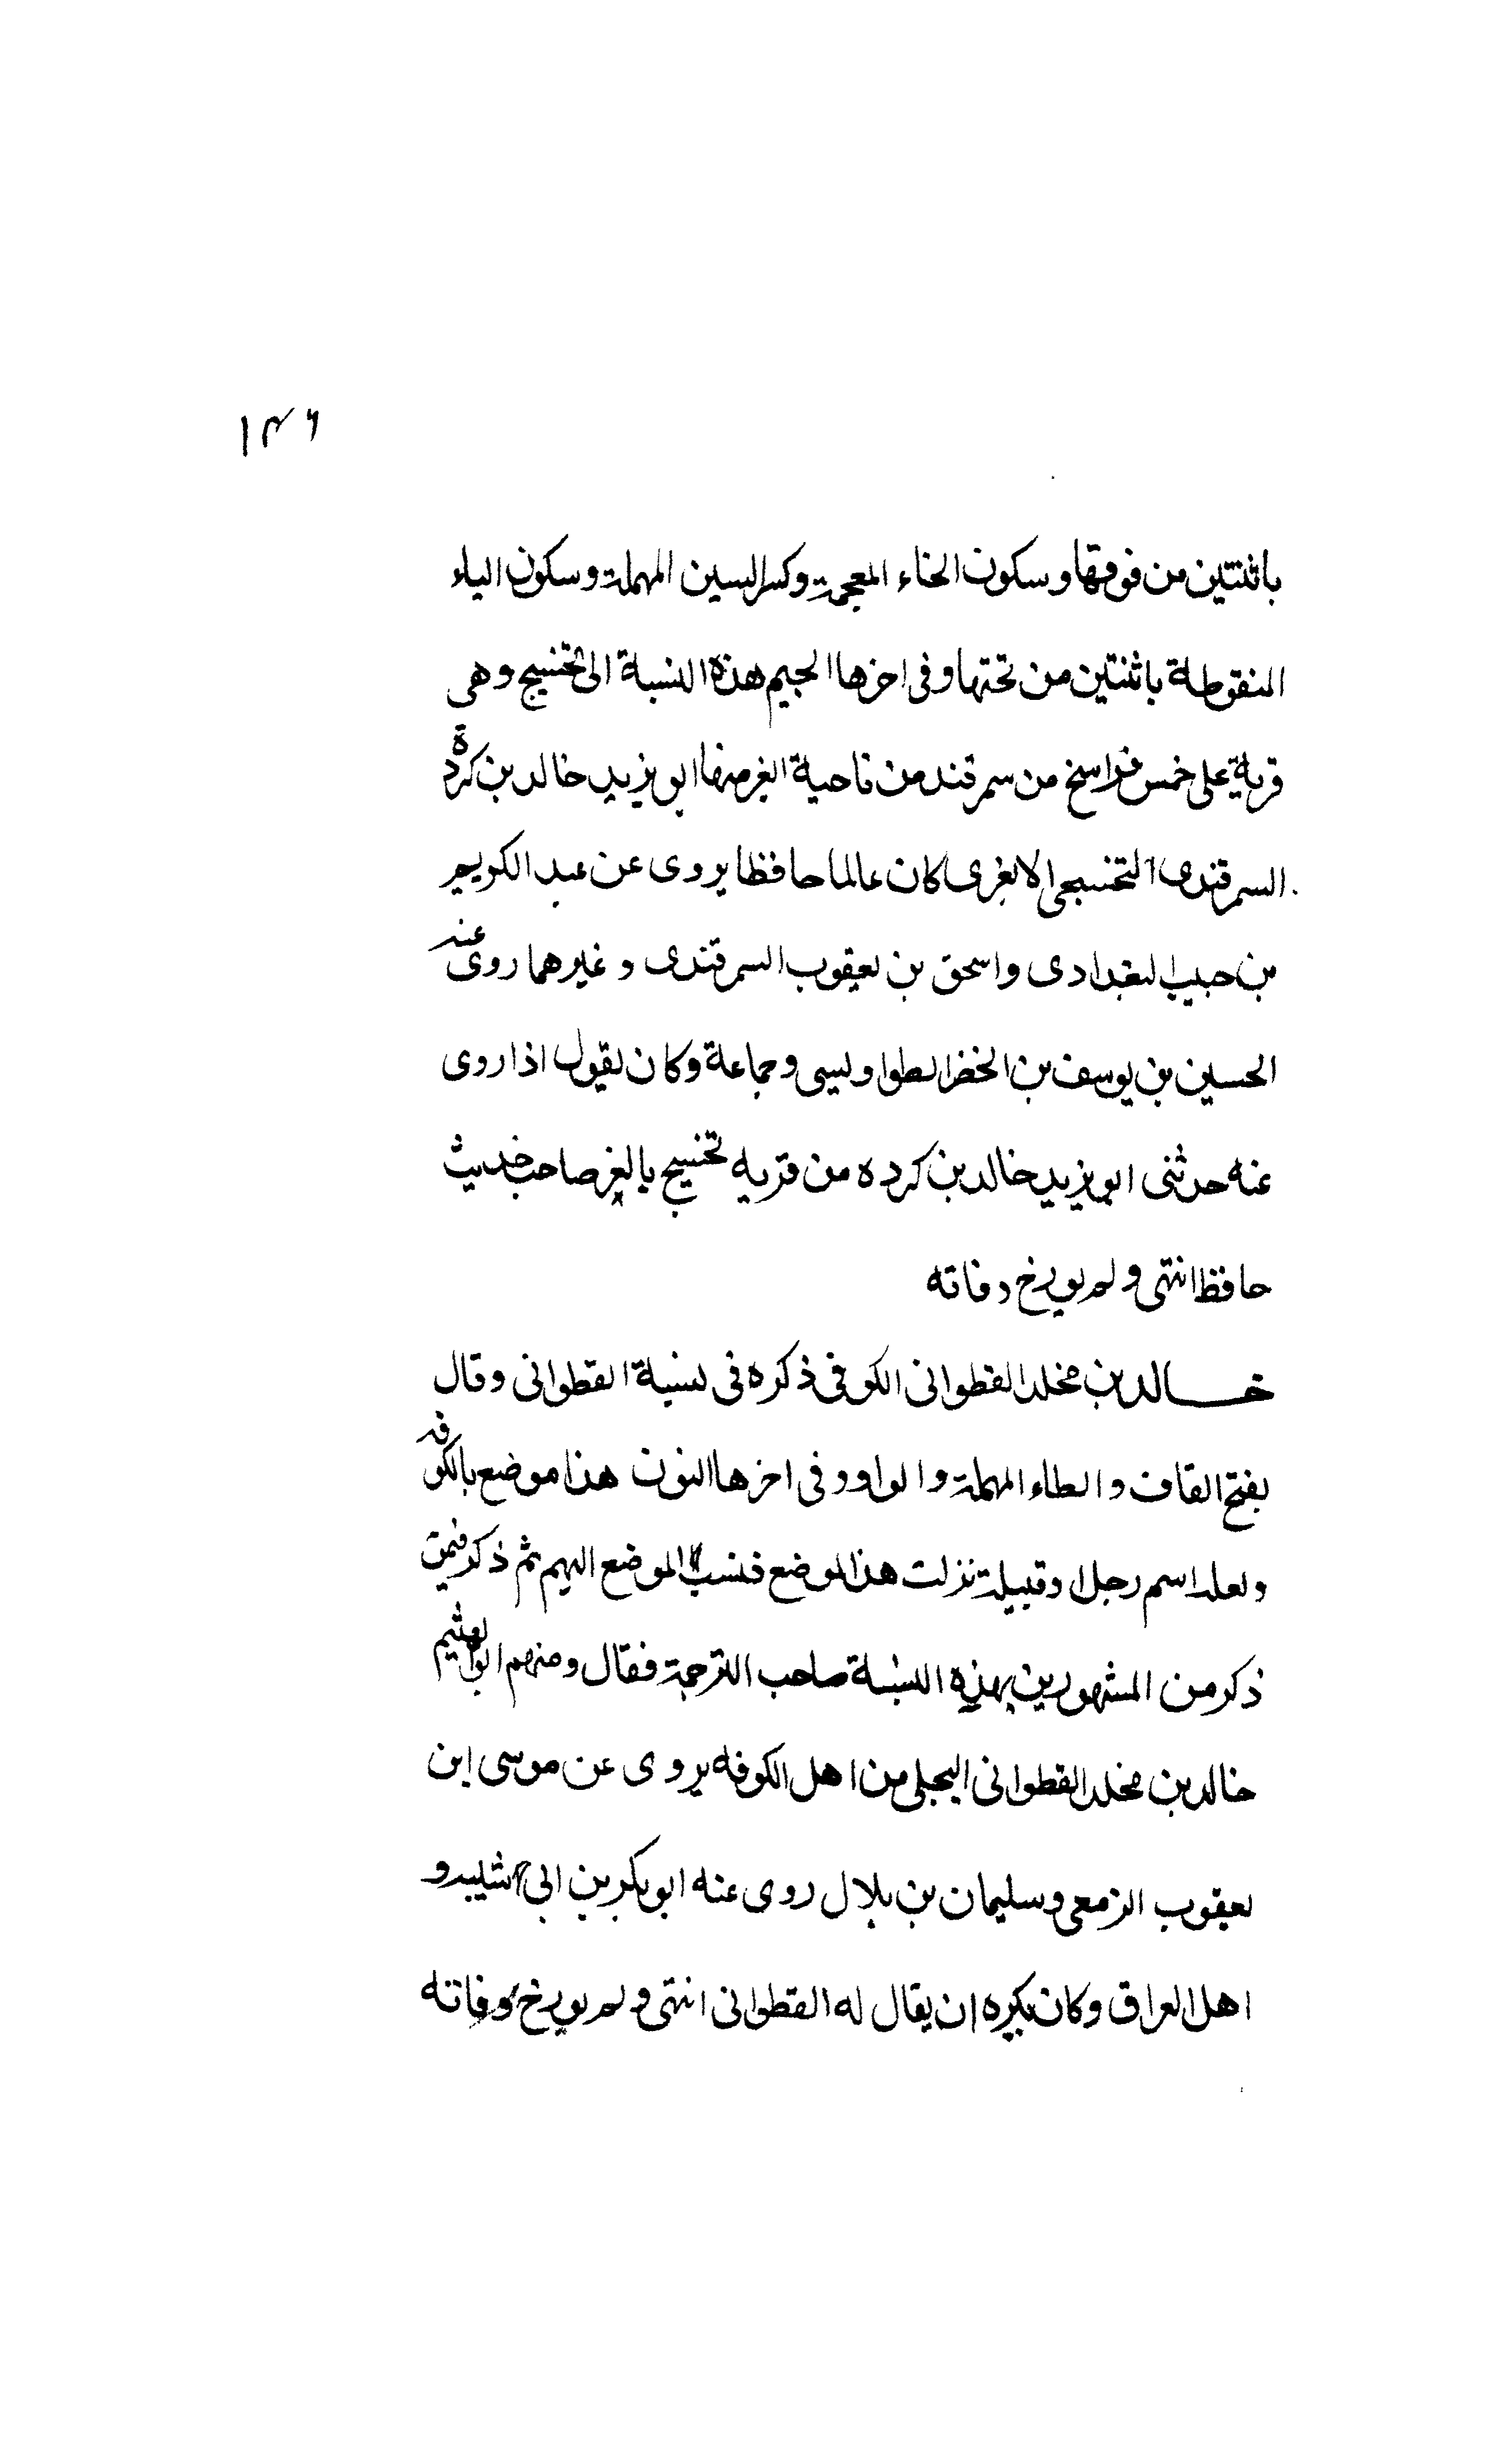 ١٣٦
باثنتين من فوقها وسكون الخاء المعجمة وكسر السين المهملة وسكون الياء
المنقوطة باثنتين من تحتها وفى اخرها الجيم هذه النسبة الى تخسيج وهى
قرية على خمس فراسخ من سمرقند من ناحية الغر منها ابو يزيد خالد بن كردة
السمرقندى التخسيجى الابغرى كان عالما حافظا يروى عن عبد الكريم
بن حبيب البغدادى واسحق بن يعقوب السمرقندى وغيرهما روى عنه
الحسين بن يوسف بن الخضر الطواويسى وجماعة وكان يقول اذا روى
عنه حدثنى ابو يزيد خالد بن كرده من قريه تخسيج بابغر صاحب حديث
حافظ انتهى ولم يورخ وفاته
خالد بن مخلد القطوانى الكوفى ذكره فى نسبة القطوانى وقال
بفتح القاف والطاء المهملة والواو وفى اخرها النون هذا موضع بالكوفه
ولعله اسم رجل او قبيلة نزلت هذا الموضع فنسب الموضع اليهم ثم ذكر فيمن
ذكر من المشهورين بهذه النسبة صاحب الترجمة فقال ومنهم ابو الهثيم
خالد بن مخلد القطوانى البجلى من اهل الكوفه يروى عن موسى ابن
يعقوب الزمعى وسليمان بن بلال روى عنه ابو بكر بن ابى شيبه و
اهل العراق وكان يكره ان يقال له القطوانى انتهى ولم يورخ وفاته